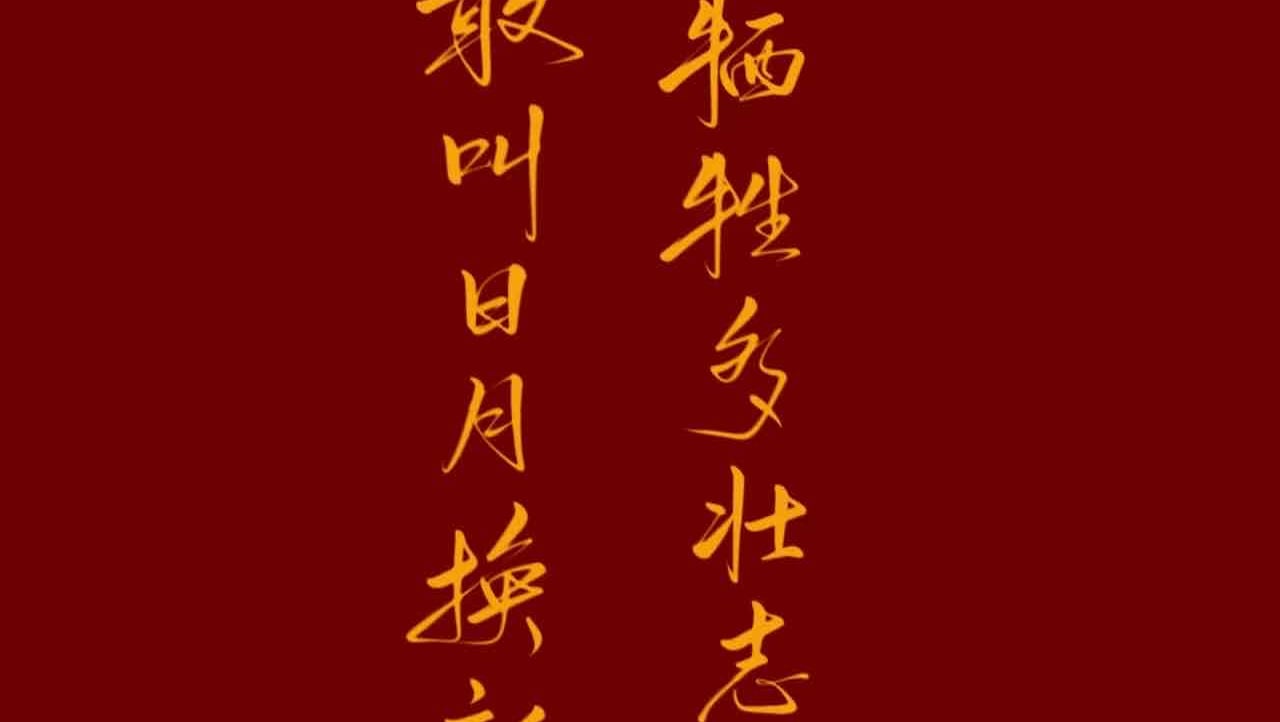 牺牲多壮志
敢叫日月换